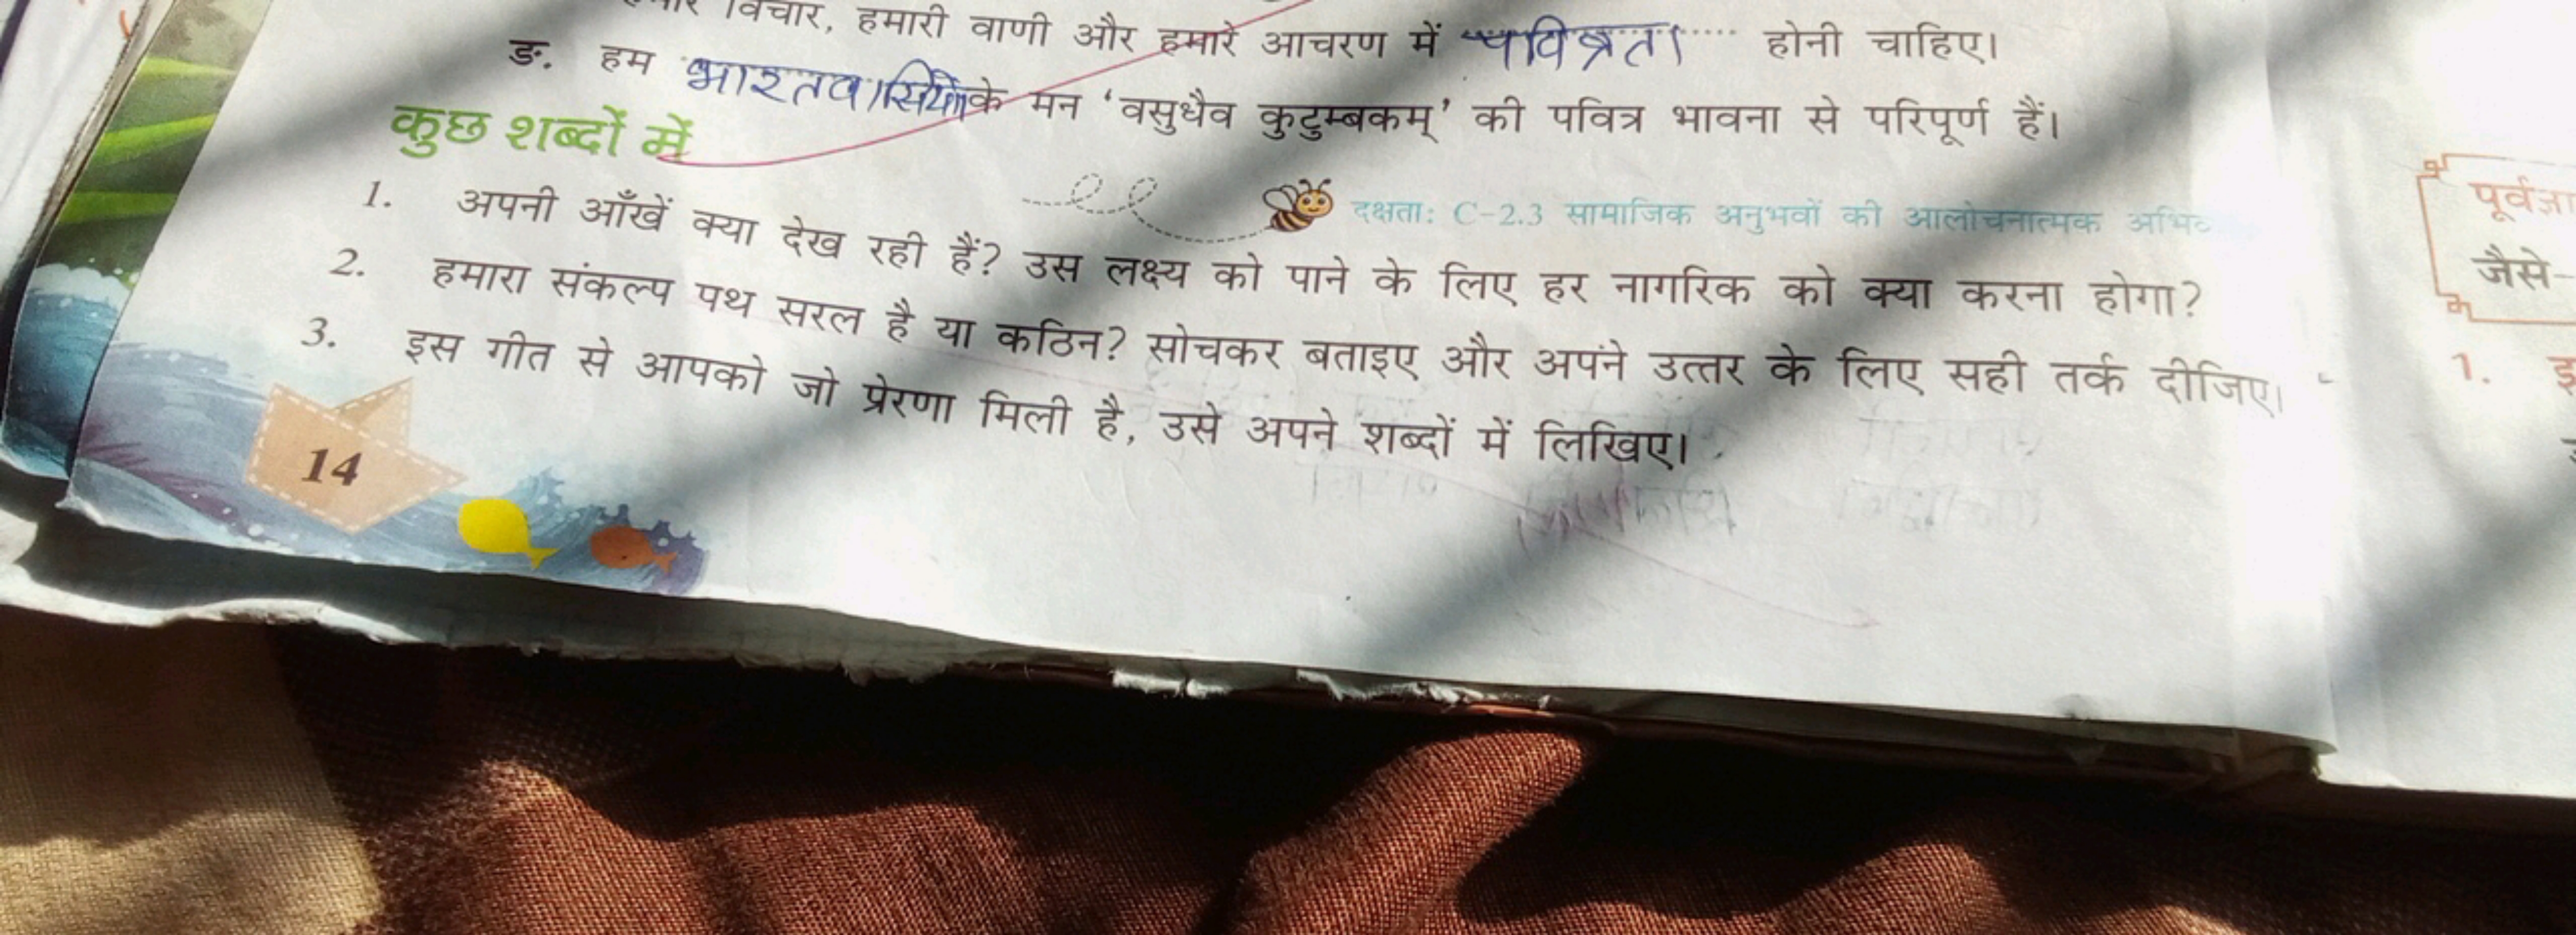 विचार, हमारी वाणी और हमारे आचरण में पवित्रता होनी चाहिए।
ङ. हम भारतवासियों के मन 'वसुधैव कुटुम्बकम्' की पवित्र भावना से परिपूर्ण हैं।
कुछ शब्दों में
दक्षता: C-2.3 सामाजिक अनुभवों की आलोचनात्मक
1. अपनी आँखें क्या देख रही हैं? उस लक्ष्य को पाने के लिए हर नागरिक को क्या करना होगा?
2. हमारा संकल्प पथ सरल है या कठिन? सोचकर बताइए और अपने उत्तर के लिए सही तर्क दीजिए।
3. इस गीत से आपको जो प्रेरणा मिली है, उसे अपने शब्दों में लिखिए।
14
जैसे-
1.